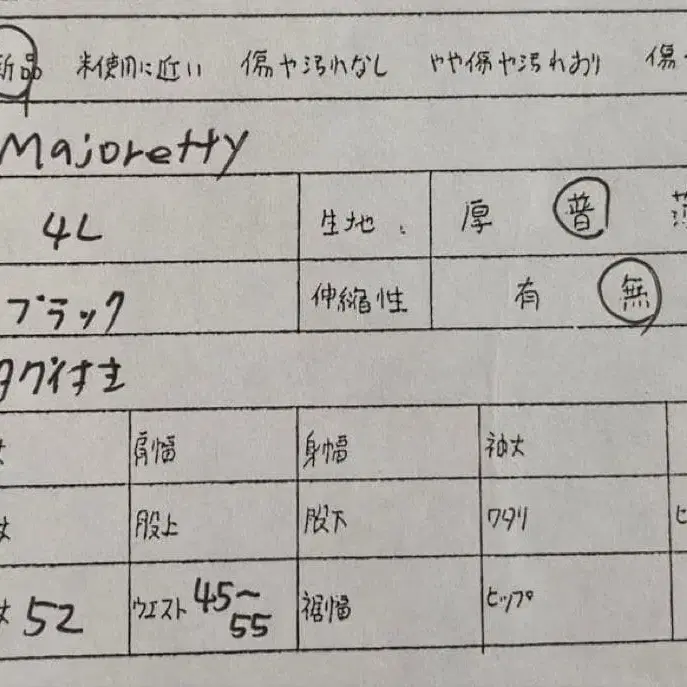 新品 未使用に近い 傷や汚れなし やや傷や汚れあり 傷
Majoretty
4L 生地 厚 普 薄
ブラック 伸縮性 有 無
タグ付き
丈 肩幅 身幅 袖丈
丈 股上 股下 ワタリ ヒ
丈 52 ウエスト 45〜55 裾幅 ヒップ